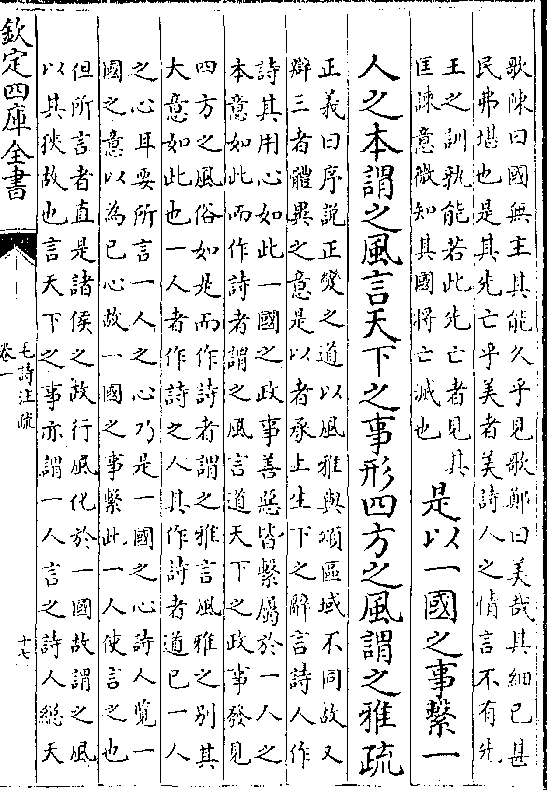 歌陳曰國無主其能久乎見歌鄭曰美哉其細已甚
民弗堪也是其先亡乎美者美詩人之情言不有先
王之訓孰能若此先亡者見其
匡諫意微知其國將亡滅也
是以一國之事繫一
人之本謂之風言天下之事形四方之風謂之雅疏
正義曰序說正變之道以風雅與頌區域不同故又
辯三者體異之意是以者承上生下之辭言詩人作
詩其用心如此一國之政事善惡皆繫屬於一人之
本意如此而作詩者謂之風言道天下之政事發見
四方之風俗如是而作詩者謂之雅言風雅之別其
大意如此也一人者作詩之人其作詩者道已一人
之心耳要所言一人之心乃是一國之心詩人覽一
國之意以為已心故一國之事繫此一人使言之也
但所言者直是諸侯之政行風化於一國故謂之風
以其狹故也言天下之事亦謂一人言之詩人緫天
欽定四庫全書
毛詩注疏
卷一
十七